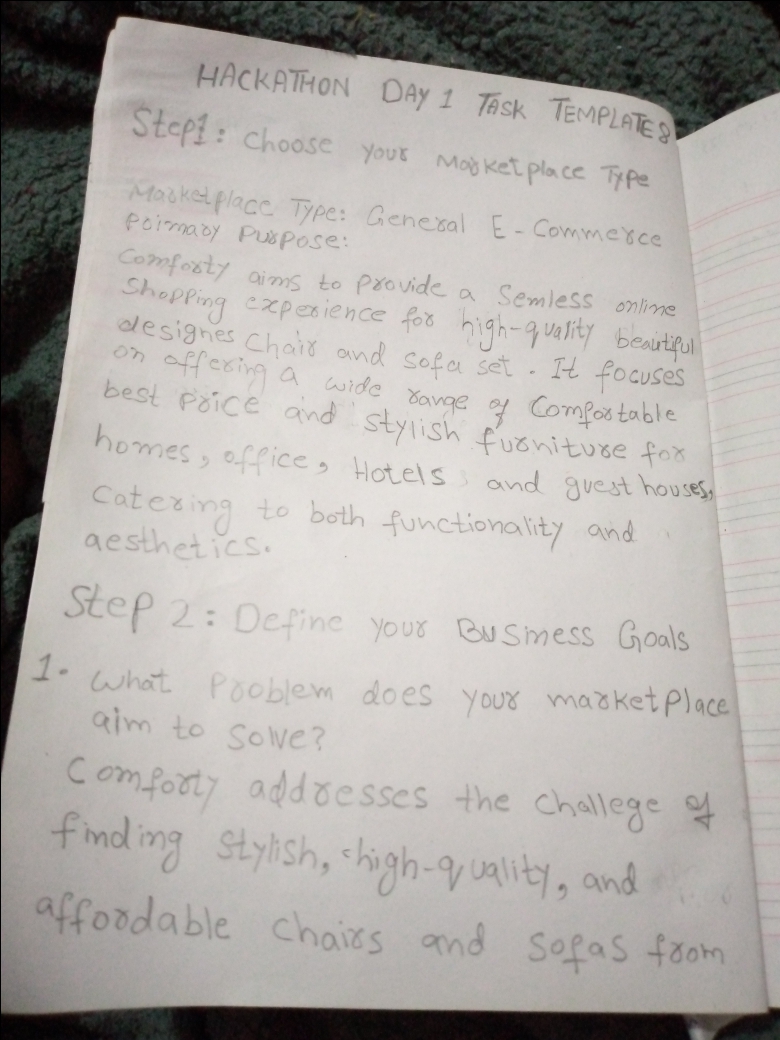 HACKATHON DAY 1 TASK TEMPLATES
Step1: Choose your Marketplace Type
Marketplace Type: General E-Commerce
Primary Purpose:
Comforty aims to provide a Semless online
Shopping experience for high-quality beautiful
designes Chair and sofa set. It focuses
on offering a wide range of Comfortable
best price and stylish furniture for
homes, office, Hotels and guest houses,
Catering to both functionality and
aesthetics.
Step 2: Define your Business Goals
1. What Problem does your marketplace
aim to Solve?
Comforty addresses the challege of
finding stylish, high-quality, and
affordable chairs and sofas from